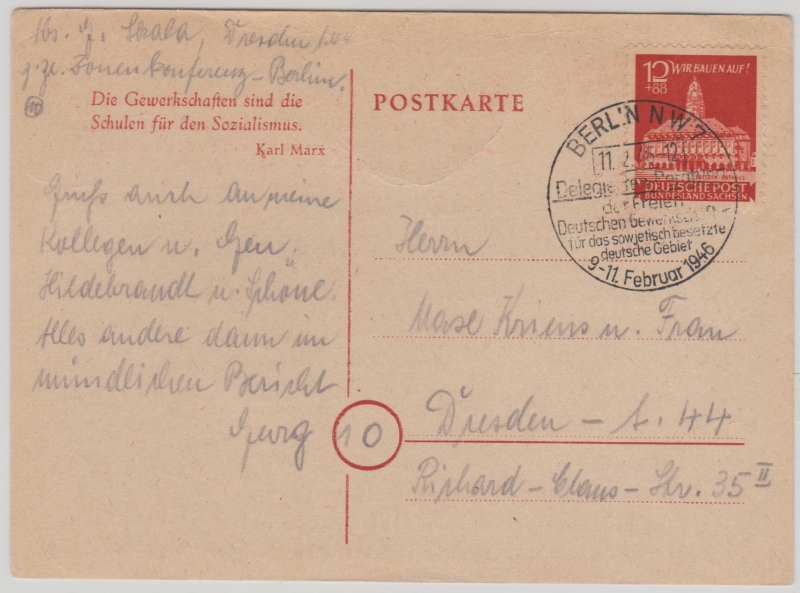 Abs. G. Skala, Dresden A 44
z. Zt. Zonenkonferenz-Berlin.
Die Gewerkschaften sind die
Schulen für den Sozialismus.
Karl Marx
Gruß auch an meine
Kollegen u. Gen.
Hildebrandt u. Schöne.
Alles andere dann im
mündlichen Bericht
Georg
POSTKARTE
12 WIR BAUEN AUF!
+88
DEUTSCHE POST
BUNDESLAND SACHSEN
BERLIN NW 7
11. 2. 12
der Freien
Deutschen
für das sowjetisch besetzte
deutsche Gebiet
9-11. Februar 1946
Herrn
Max Kriens u. Frau
10
Dresden - A. 44
Richard-Claus-Str. 35 II